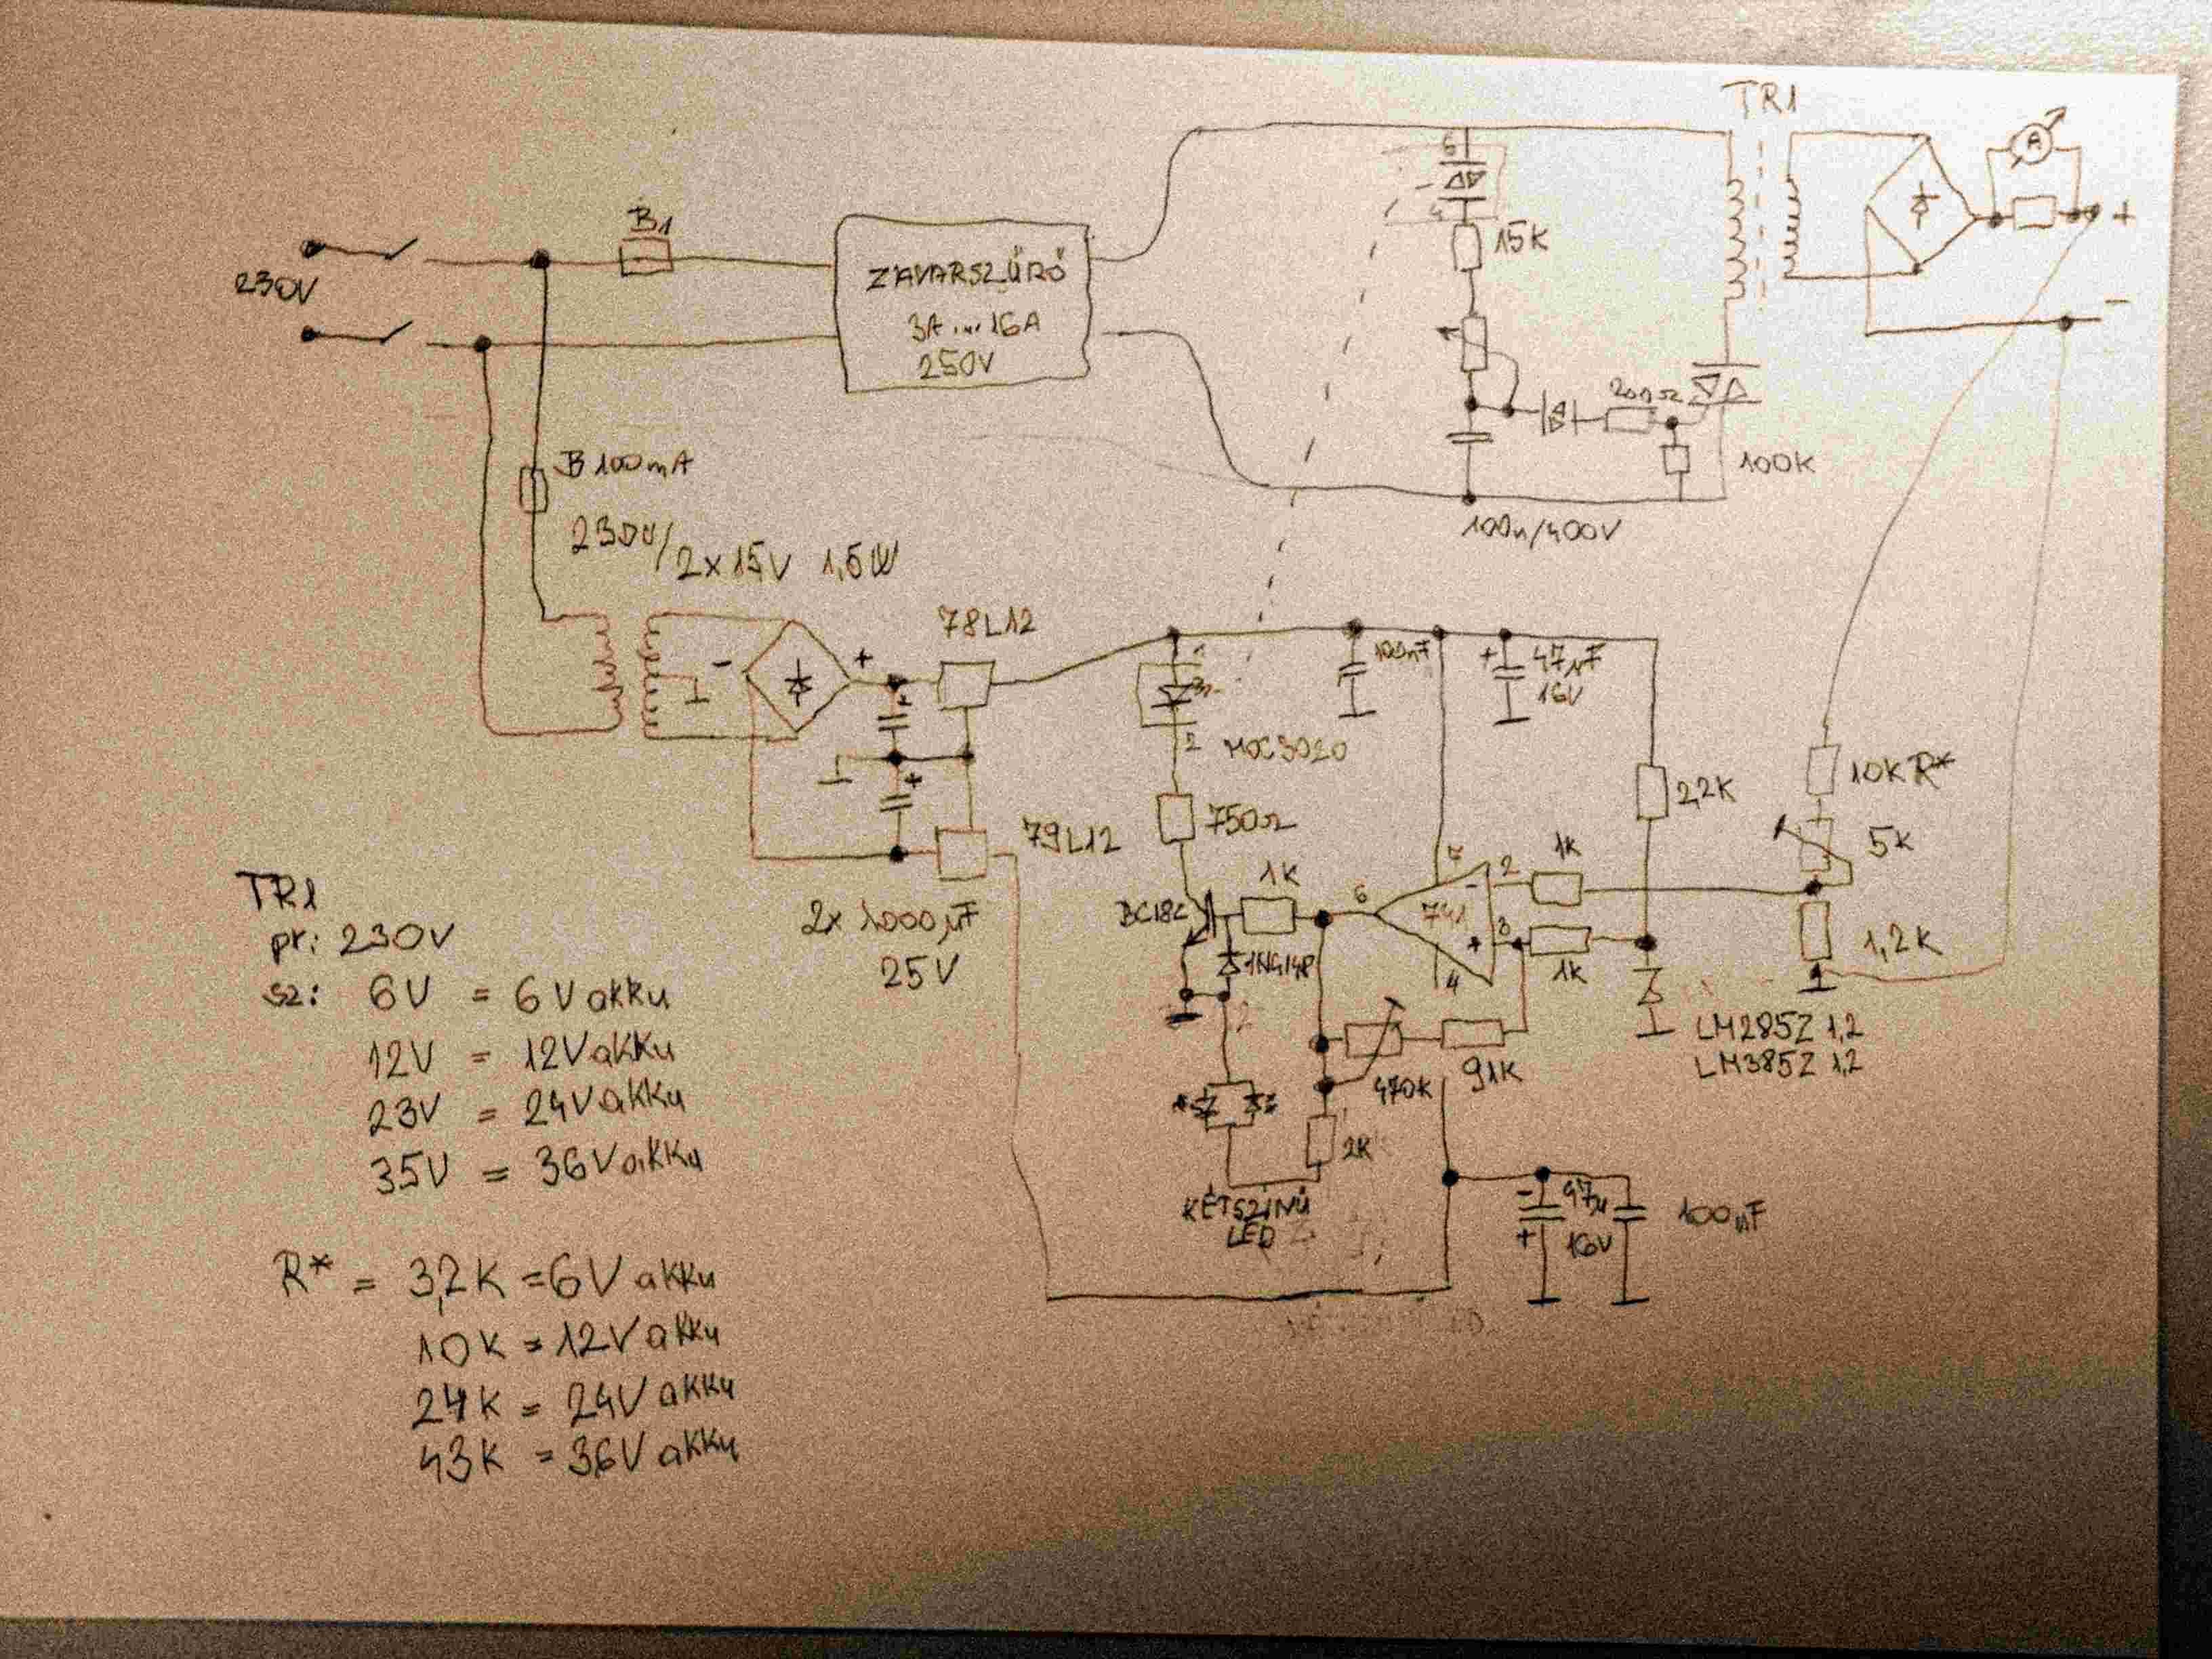 TR1
A
+
-
B1
230V
ZAVARSZŰRŐ
3A...16A
250V
6
4
15K
200Ω
100K
100n/400V
B 100mA
230V/
2x15V 1,5W
78L12
-
+
+
+
79L12
2x 1000µF
25V
1
2
MOC3020
750Ω
100nF
+
47µF
16V
2,2K
10K R*
5K
1,2K
1K
BC182
1N4148
6
741
7
2
-
3
+
4
1K
1K
470K
91K
2K
LM285Z 1,2
LM385Z 1,2
KÉTSZÍNŰ
LED
-
47µ
+
16V
100nF
TR1
pr: 230V
sz: 6V = 6V akku
12V = 12V akku
23V = 24V akku
35V = 36V akku
R* = 3,2K = 6V akku
10K = 12V akku
24K = 24V akku
43K = 36V akku